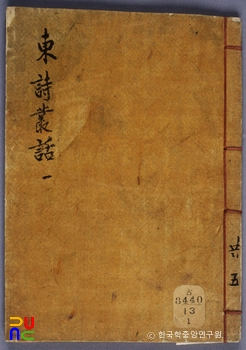 東詩叢話 一
共五
古
3440
13
1
RUNG
© 한국학중앙연구원